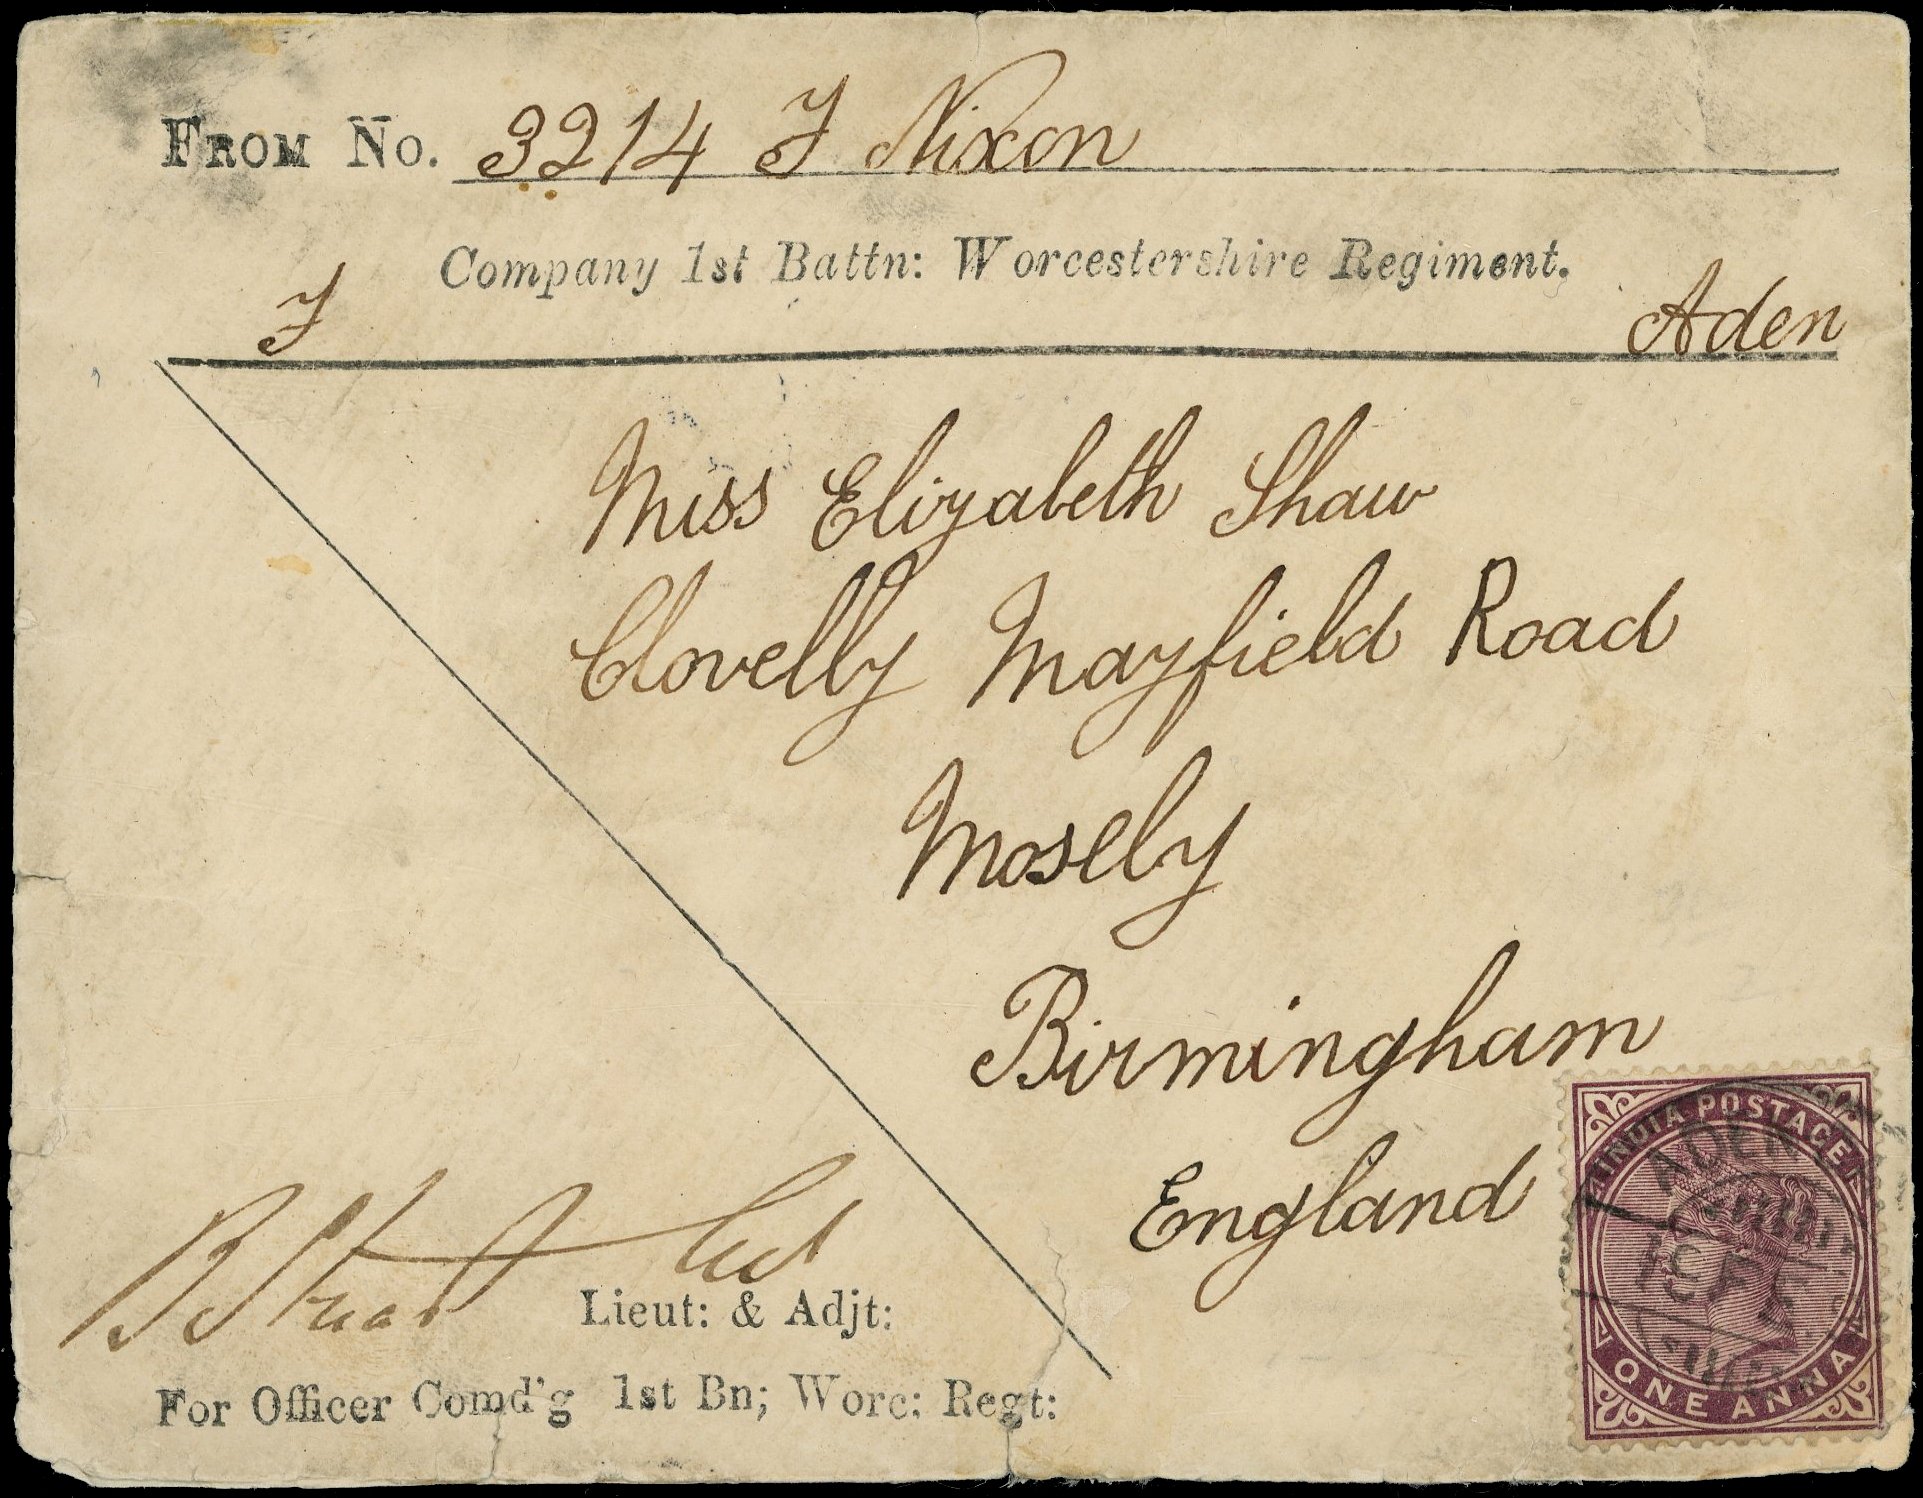 FROM No. 3214 F Nixon
Company 1st Battn: Worcestershire Regiment.
F Aden
Miss Elizabeth Shaw
Clovelly Mayfield Road
Mosely
Birmingham
England
INDIA POSTAGE
ADEN
ONE ANNA
Lieut: & Adjt:
For Officer Comd'g 1st Bn; Worc: Regt: